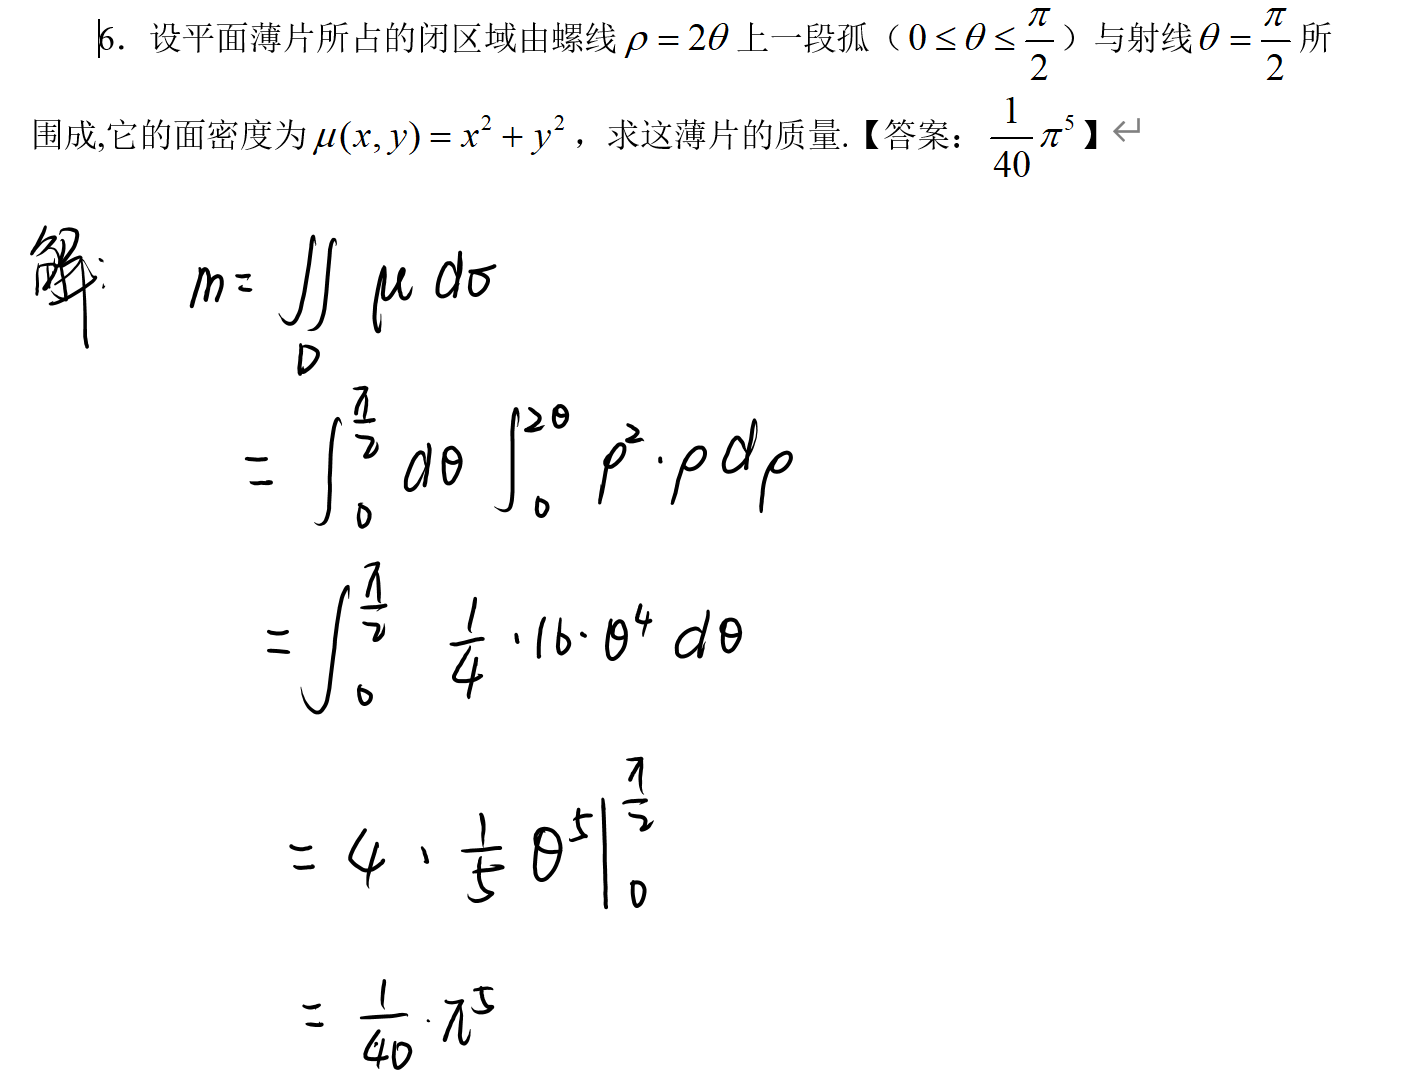 6. 设平面薄片所占的闭区域由螺线 ρ = 2θ 上一段孤（0 ≤ θ ≤ π/2）与射线 θ = π/2 所
围成,它的面密度为 μ(x, y) = x² + y²，求这薄片的质量.【答案：1/40 π⁵】↵
解: m = ∬_D μ dσ
= ∫₀^(π/2) dθ ∫₀^(2θ) ρ² · ρ dρ
= ∫₀^(π/2) 1/4 · 16 · θ⁴ dθ
= 4 · 1/5 θ⁵ |₀^(π/2)
= 1/40 · π⁵